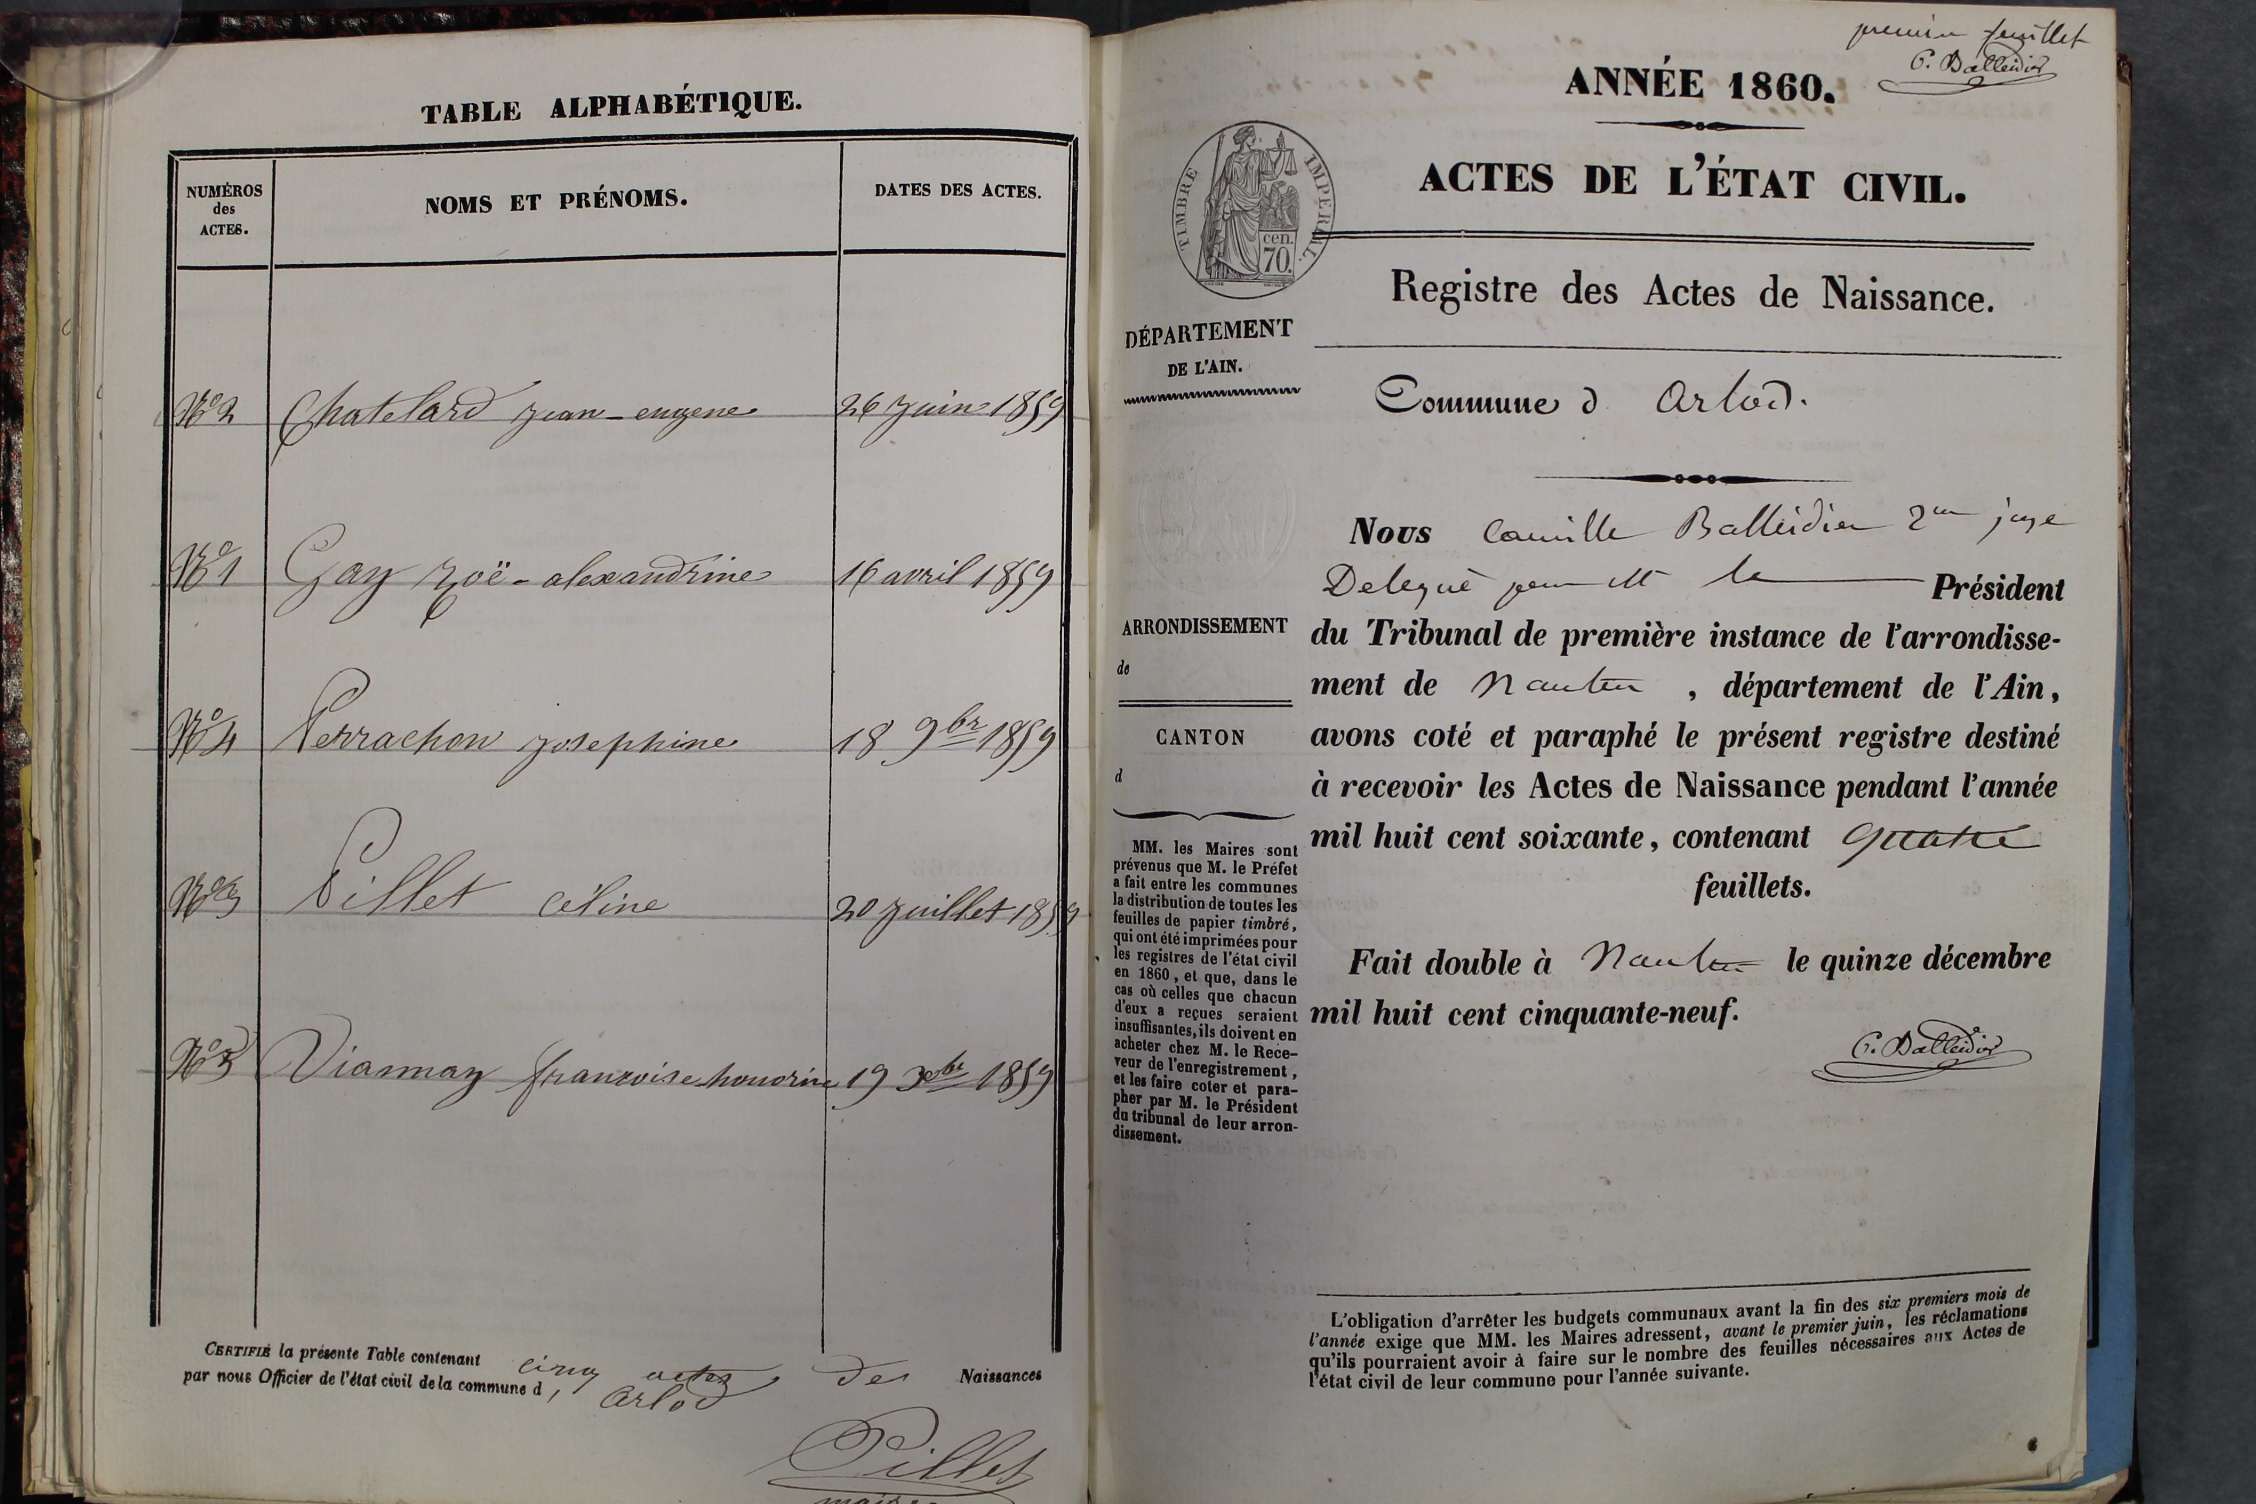 TABLE ALPHABÉTIQUE.
NUMÉROS
des
ACTES.
NOMS ET PRÉNOMS.
DATES DES ACTES.
N° 2 Chatelard jean-eugene 26 juin 1859
N° 1 Gay zoë-alexandrine 16 avril 1859
N° 4 Perrachon josephine 18 9bre 1859
N° 3 Pillet céline 20 juillet 1859
N° 5 Viannay françoise honorine 19 Xbre 1859
CERTIFIÉ la présente Table contenant cinq actes de Naissances
par nous Officier de l'état civil de la commune d'Arlod
Pillet
maire
premier feuillet
C. Balleidier
ANNÉE 1860.
TIMBRE IMPÉRIAL.
cen.
70.
ACTES DE L'ÉTAT CIVIL.
Registre des Actes de Naissance.
DÉPARTEMENT
DE L'AIN.
Commune d Arlod.
ARRONDISSEMENT
de
CANTON
d
MM. les Maires sont
prévenus que M. le Préfet
a fait entre les communes
la distribution de toutes les
feuilles de papier timbré,
qui ont été imprimées pour
les registres de l'état civil
en 1860, et que, dans le
cas où celles que chacun
d'eux a reçues seraient
insuffisantes, ils doivent en
acheter chez M. le Rece-
veur de l'enregistrement,
et les faire coter et para-
pher par M. le Président
du tribunal de leur arron-
dissement.
Nous Camille Balleidier juge
Delegué par M le Président
du Tribunal de première instance de l'arrondisse-
ment de Nantua, département de l'Ain,
avons coté et paraphé le présent registre destiné
à recevoir les Actes de Naissance pendant l'année
mil huit cent soixante, contenant quatre
feuillets.
Fait double à Nantua le quinze décembre
mil huit cent cinquante-neuf.
C. Balleidier
L'obligation d'arrêter les budgets communaux avant la fin des six premiers mois de
l'année exige que MM. les Maires adressent, avant le premier juin, les réclamations
qu'ils pourraient avoir à faire sur le nombre des feuilles nécessaires aux Actes de
l'état civil de leur commune pour l'année suivante.